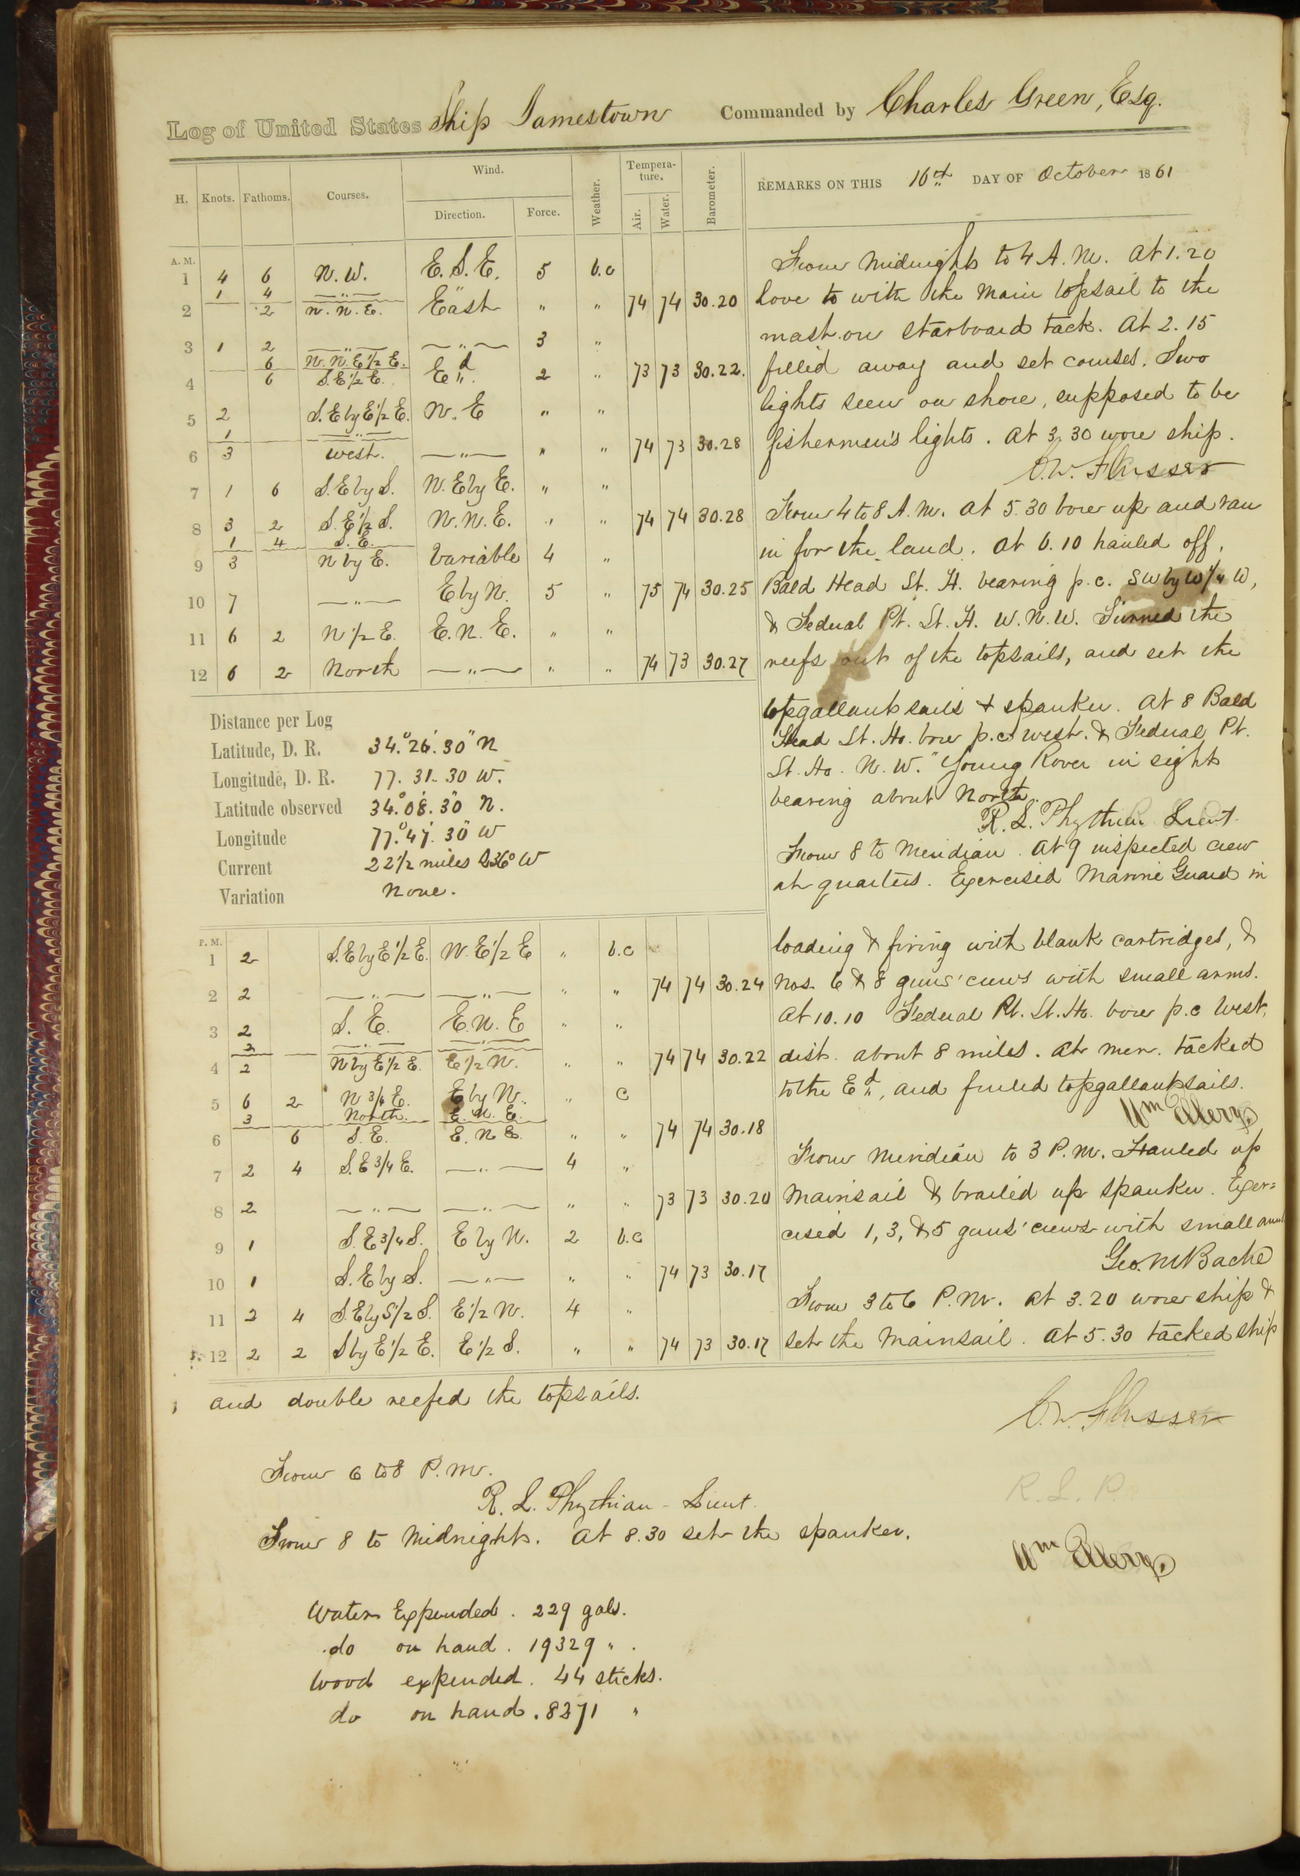 Log of United States Ship Jamestown Commanded by Charles Green, Esq.
H. Knots. Fathoms. Courses. Wind. Direction. Force. Weather. Temperature. Air. Water. Barometer.
REMARKS ON THIS 16th DAY OF October 1861
A. M.
1 4 6 N.W. E.S.E. 5 b.c
1 4 —〃—
2 2 N.N.E. East 〃 〃 74 74 30.20
3 1 2 —〃— —〃— 3 〃
6 N.N.E 1/2 E.
4 6 S.E 1/2 E. Ed 2 〃 73 73 30.22.
5 2 S.E by E 1/2 E. N.E 〃 〃
1 —〃—
6 3 West. —〃— 〃 〃 74 73 30.28
7 1 6 S.E by S. N.E by E. 〃 〃
8 3 2 S.E 1/2 S. N.N.E. 〃 〃 74 74 30.28
1 4 S.E.
9 3 N by E. Variable 4 〃
10 7 —〃— E by N. 5 〃 75 74 30.25
11 6 2 N 1/2 E. E.N.E. 〃 〃
12 6 2 North —〃— 〃 〃 74 73 30.27
Distance per Log
Latitude, D. R. 34.° 26.' 30" N
Longitude, D. R. 77. 31. 30 W.
Latitude observed 34.° 08.' 30" N.
Longitude 77.° 47.' 30" W
Current 22 1/2 miles S36° W
Variation None.
P. M.
1 2 S.E by E 1/2 E. N.E 1/2 E 〃 b.c
2 2 —〃— —〃— 〃 〃 74 74 30.24
3 2 S.E. E.N.E 〃 〃
2 —〃— —〃—
4 2 N by E 1/2 E. E 1/2 N. 〃 〃 74 74 30.22
5 6 2 N 3/4 E. E by N. 〃 c
3 North. E.N.E.
6 6 S.E. E.N.E. 〃 〃 74 74 30.18
7 2 4 S.E 3/4 E. —〃— 4 〃
8 2 —〃— —〃— 〃 〃 73 73 30.20
9 1 S.E 3/4 S. E by N. 2 b.c
10 1 S.E by S. —〃— 〃 〃 74 73 30.17
11 2 4 S.E by S 1/2 S. E 1/2 N. 4 〃
12 2 2 S by E 1/2 E. E 1/2 S. 〃 〃 74 73 30.17
From Midnight to 4 A.M. At 1.20
hove to with the main topsail to the
mast on starboard tack. At 2.15
filled away and set courses. Two
lights seen on shore, supposed to be
fishermen's lights. At 3.30 wore ship.
C.W. Flusser
From 4 to 8 A.M. At 5.30 bore up and ran
in for the land. At 6.10 hauled off,
Bald Head Lt. H. bearing p.c. SW by W 1/4 W,
& Federal Pt. Lt. H. W.N.W. Turned the
reefs out of the topsails, and set the
topgallant sails & spanker. At 8 Bald
Head Lt. Ho. bore p.c. west. & Federal Pt.
Lt. Ho. N.W. "Young Rover in sight
bearing about North.
R. L. Phythian Lieut.
From 8 to Meridian. At 9 inspected crew
at quarters. Exercised Marine Guard in
loading & firing with blank cartridges, &
Nos. 6 & 8 guns' crews with small arms.
At 10.10 Federal Pt. Lt. Ho. bore p.c West,
dist. about 8 miles. At mer. tacked
to the Ed, and furled topgallantsails.
Wm Ellery
From Meridian to 3 P.M. Hauled up
mainsail & brailed up spanker. Exer=
cised 1, 3, & 5 guns' crews with small arms
Geo. M Bache
From 3 to 6 P.M. At 3.20 wore ship &
set the mainsail. At 5.30 tacked ship
and double reefed the topsails.
C.W. Flusser
From 6 to 8 P.M.
R. L. Phythian - Lieut.
R. L. P.
From 8 to Midnight. At 8.30 set the spanker.
Wm Ellery
Water Expended. 229 gals.
do on hand. 19329 〃.
Wood expended. 44 sticks.
do on hand. 8371 〃